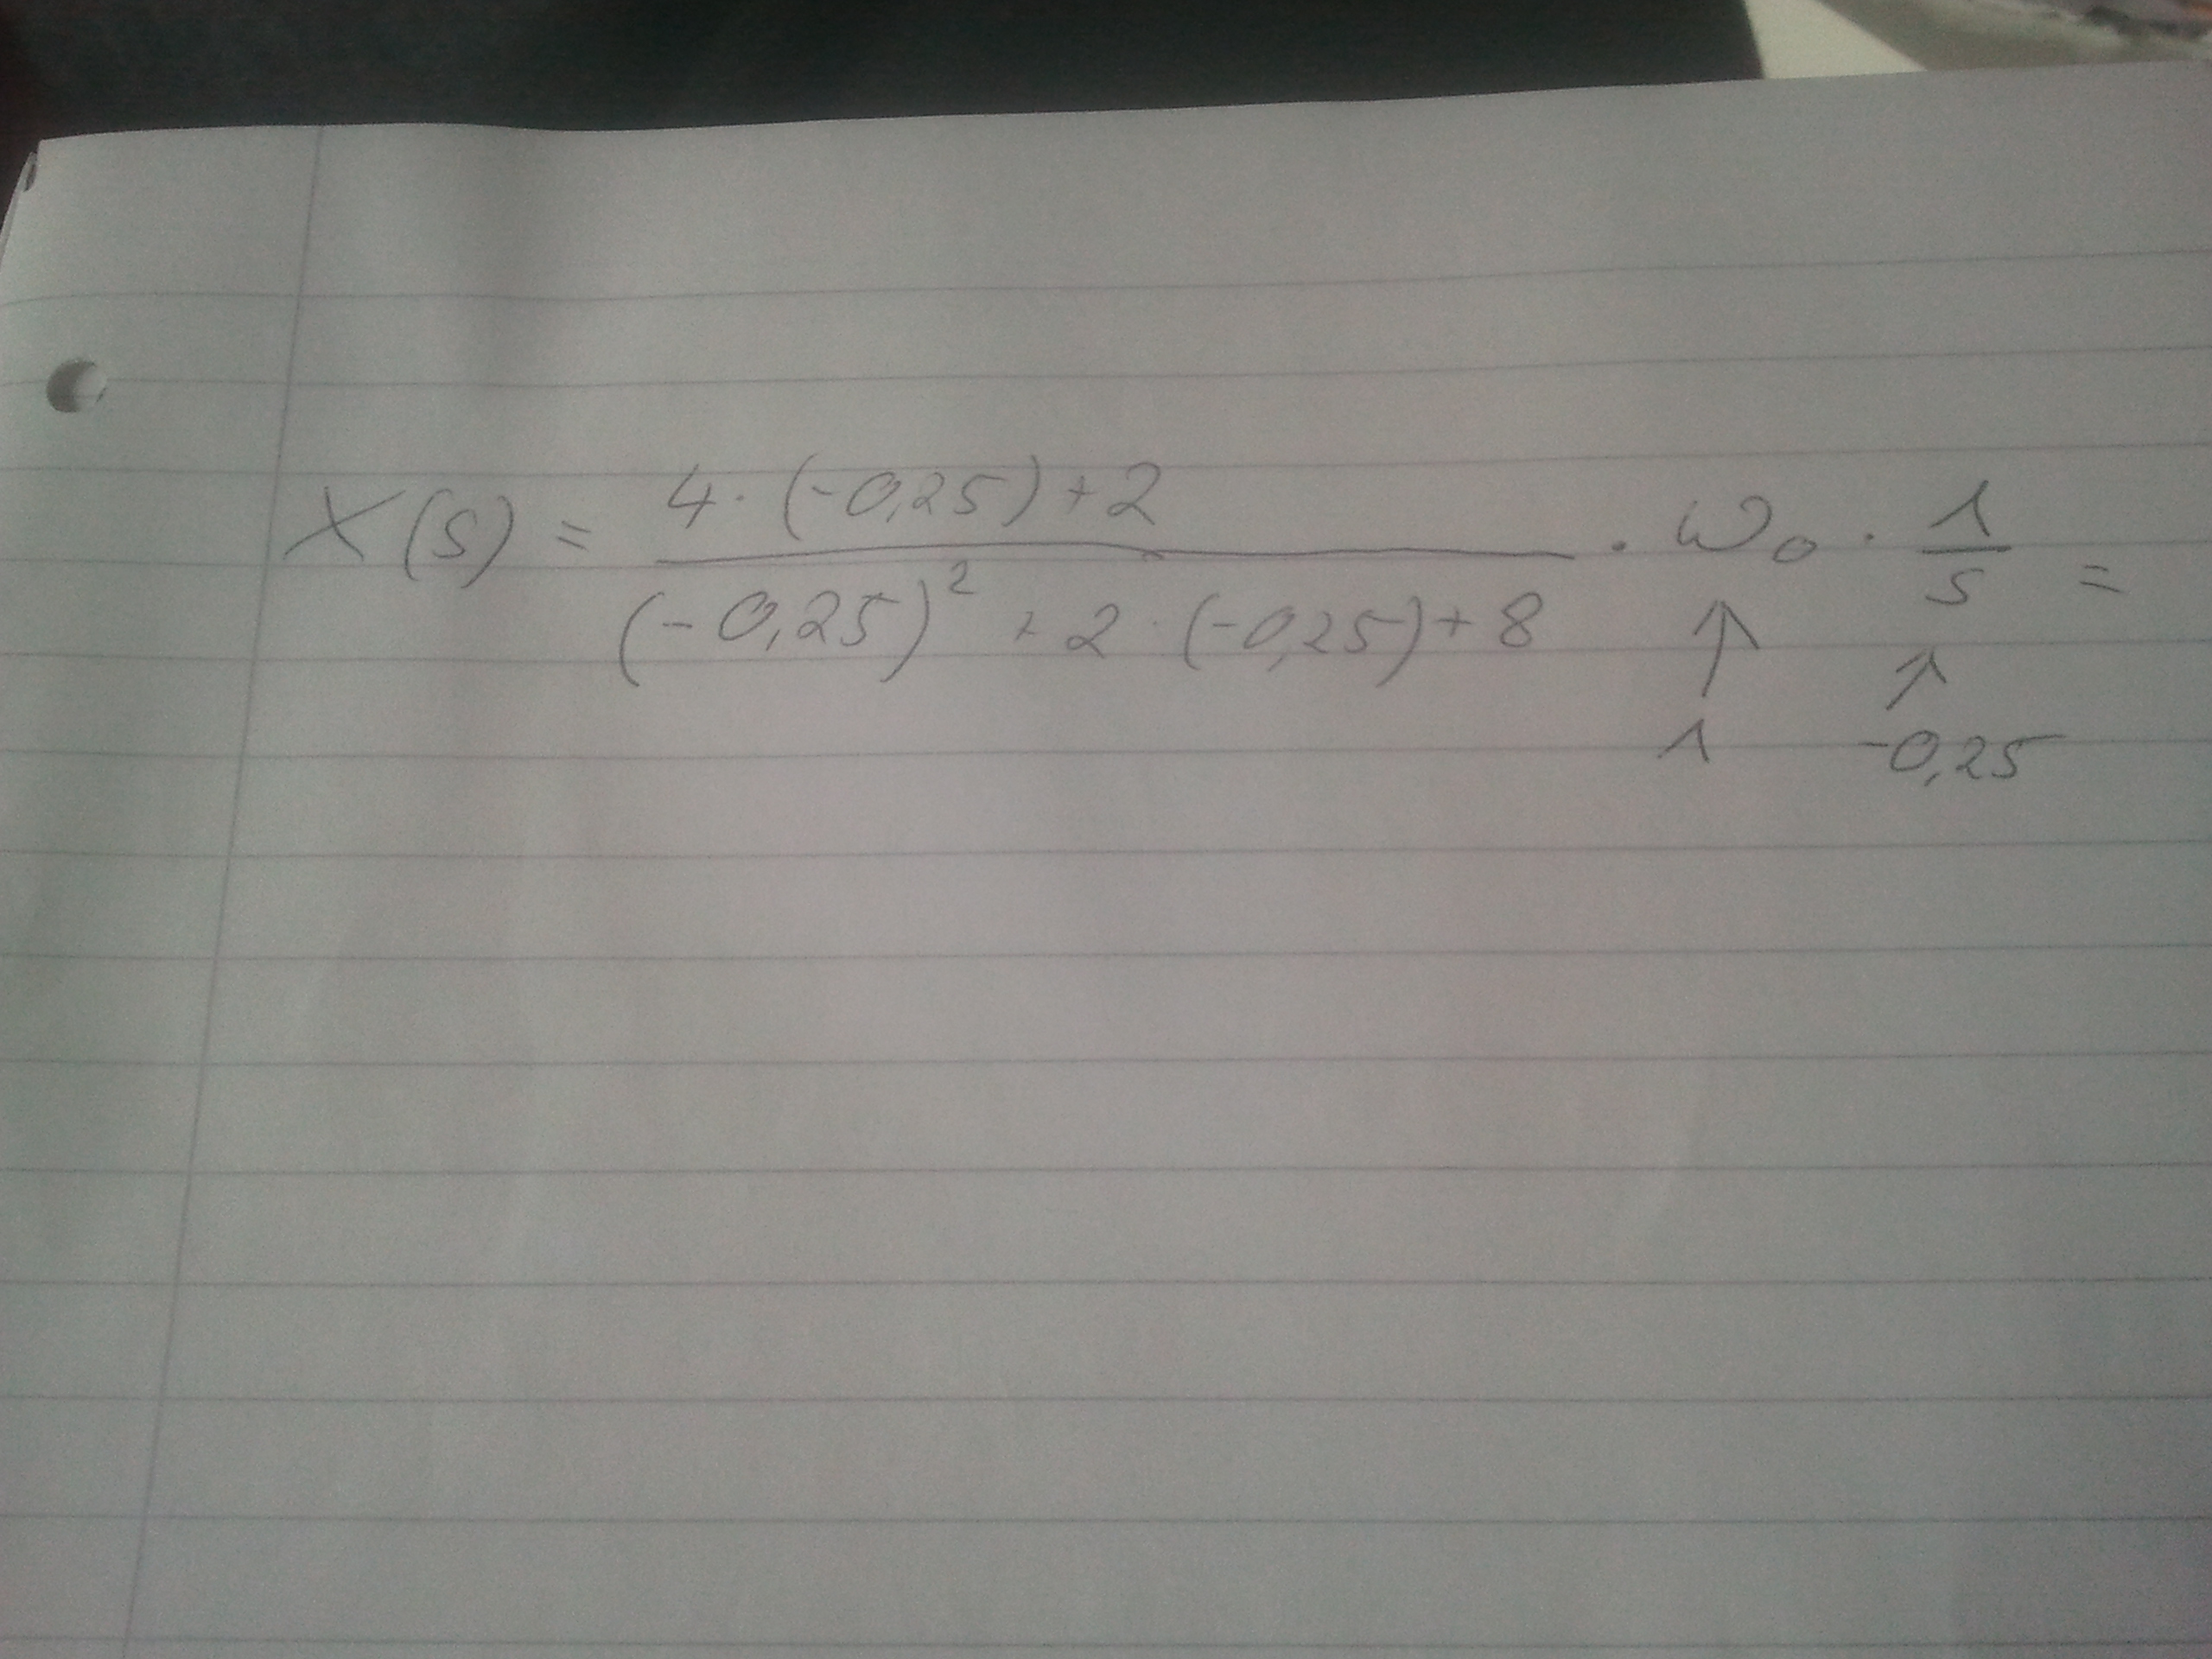 X(s) = 4·(-0,25)+2 / (-0,25)² + 2·(-0,25)+8 · ω₀ · 1/s =
↑ ↑
1 -0,25